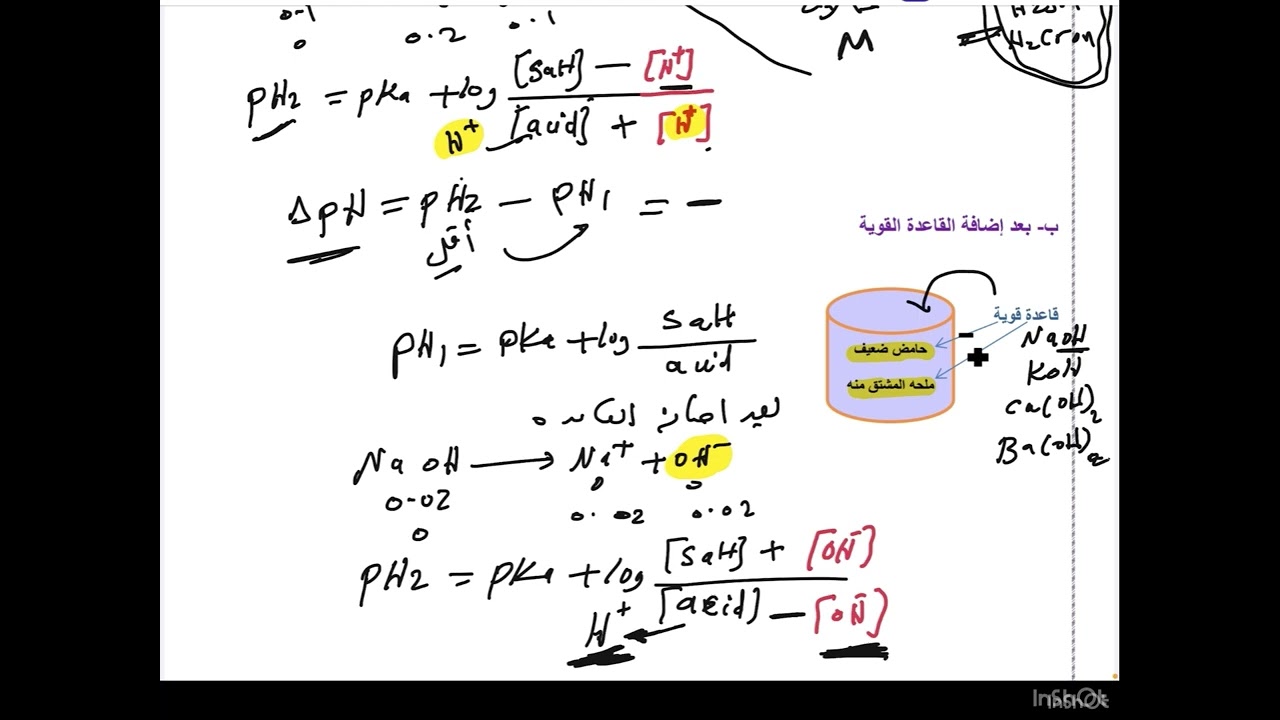 0.1
0
0.2
0.1
M
H2CrO4
pH2 = pKa + log [salt] − [H+] / [acid] + [H+]
H+
ΔpH = pH2 − pH1 = −
أقل
ب- بعد إضافة القاعدة القوية
قاعدة قوية
حامض ضعيف
ملحه المشتق منه
−
+
NaOH
KOH
Ca(OH)2
Ba(OH)2
pH1 = pKa + log salt / acid
بعد اضافة القاعدة
NaOH → Na+ + OH−
0.02 0 0
0 0.02 0.02
pH2 = pKa + log [salt] + [OH−] / [acid] − [OH−]
H+
InShOt